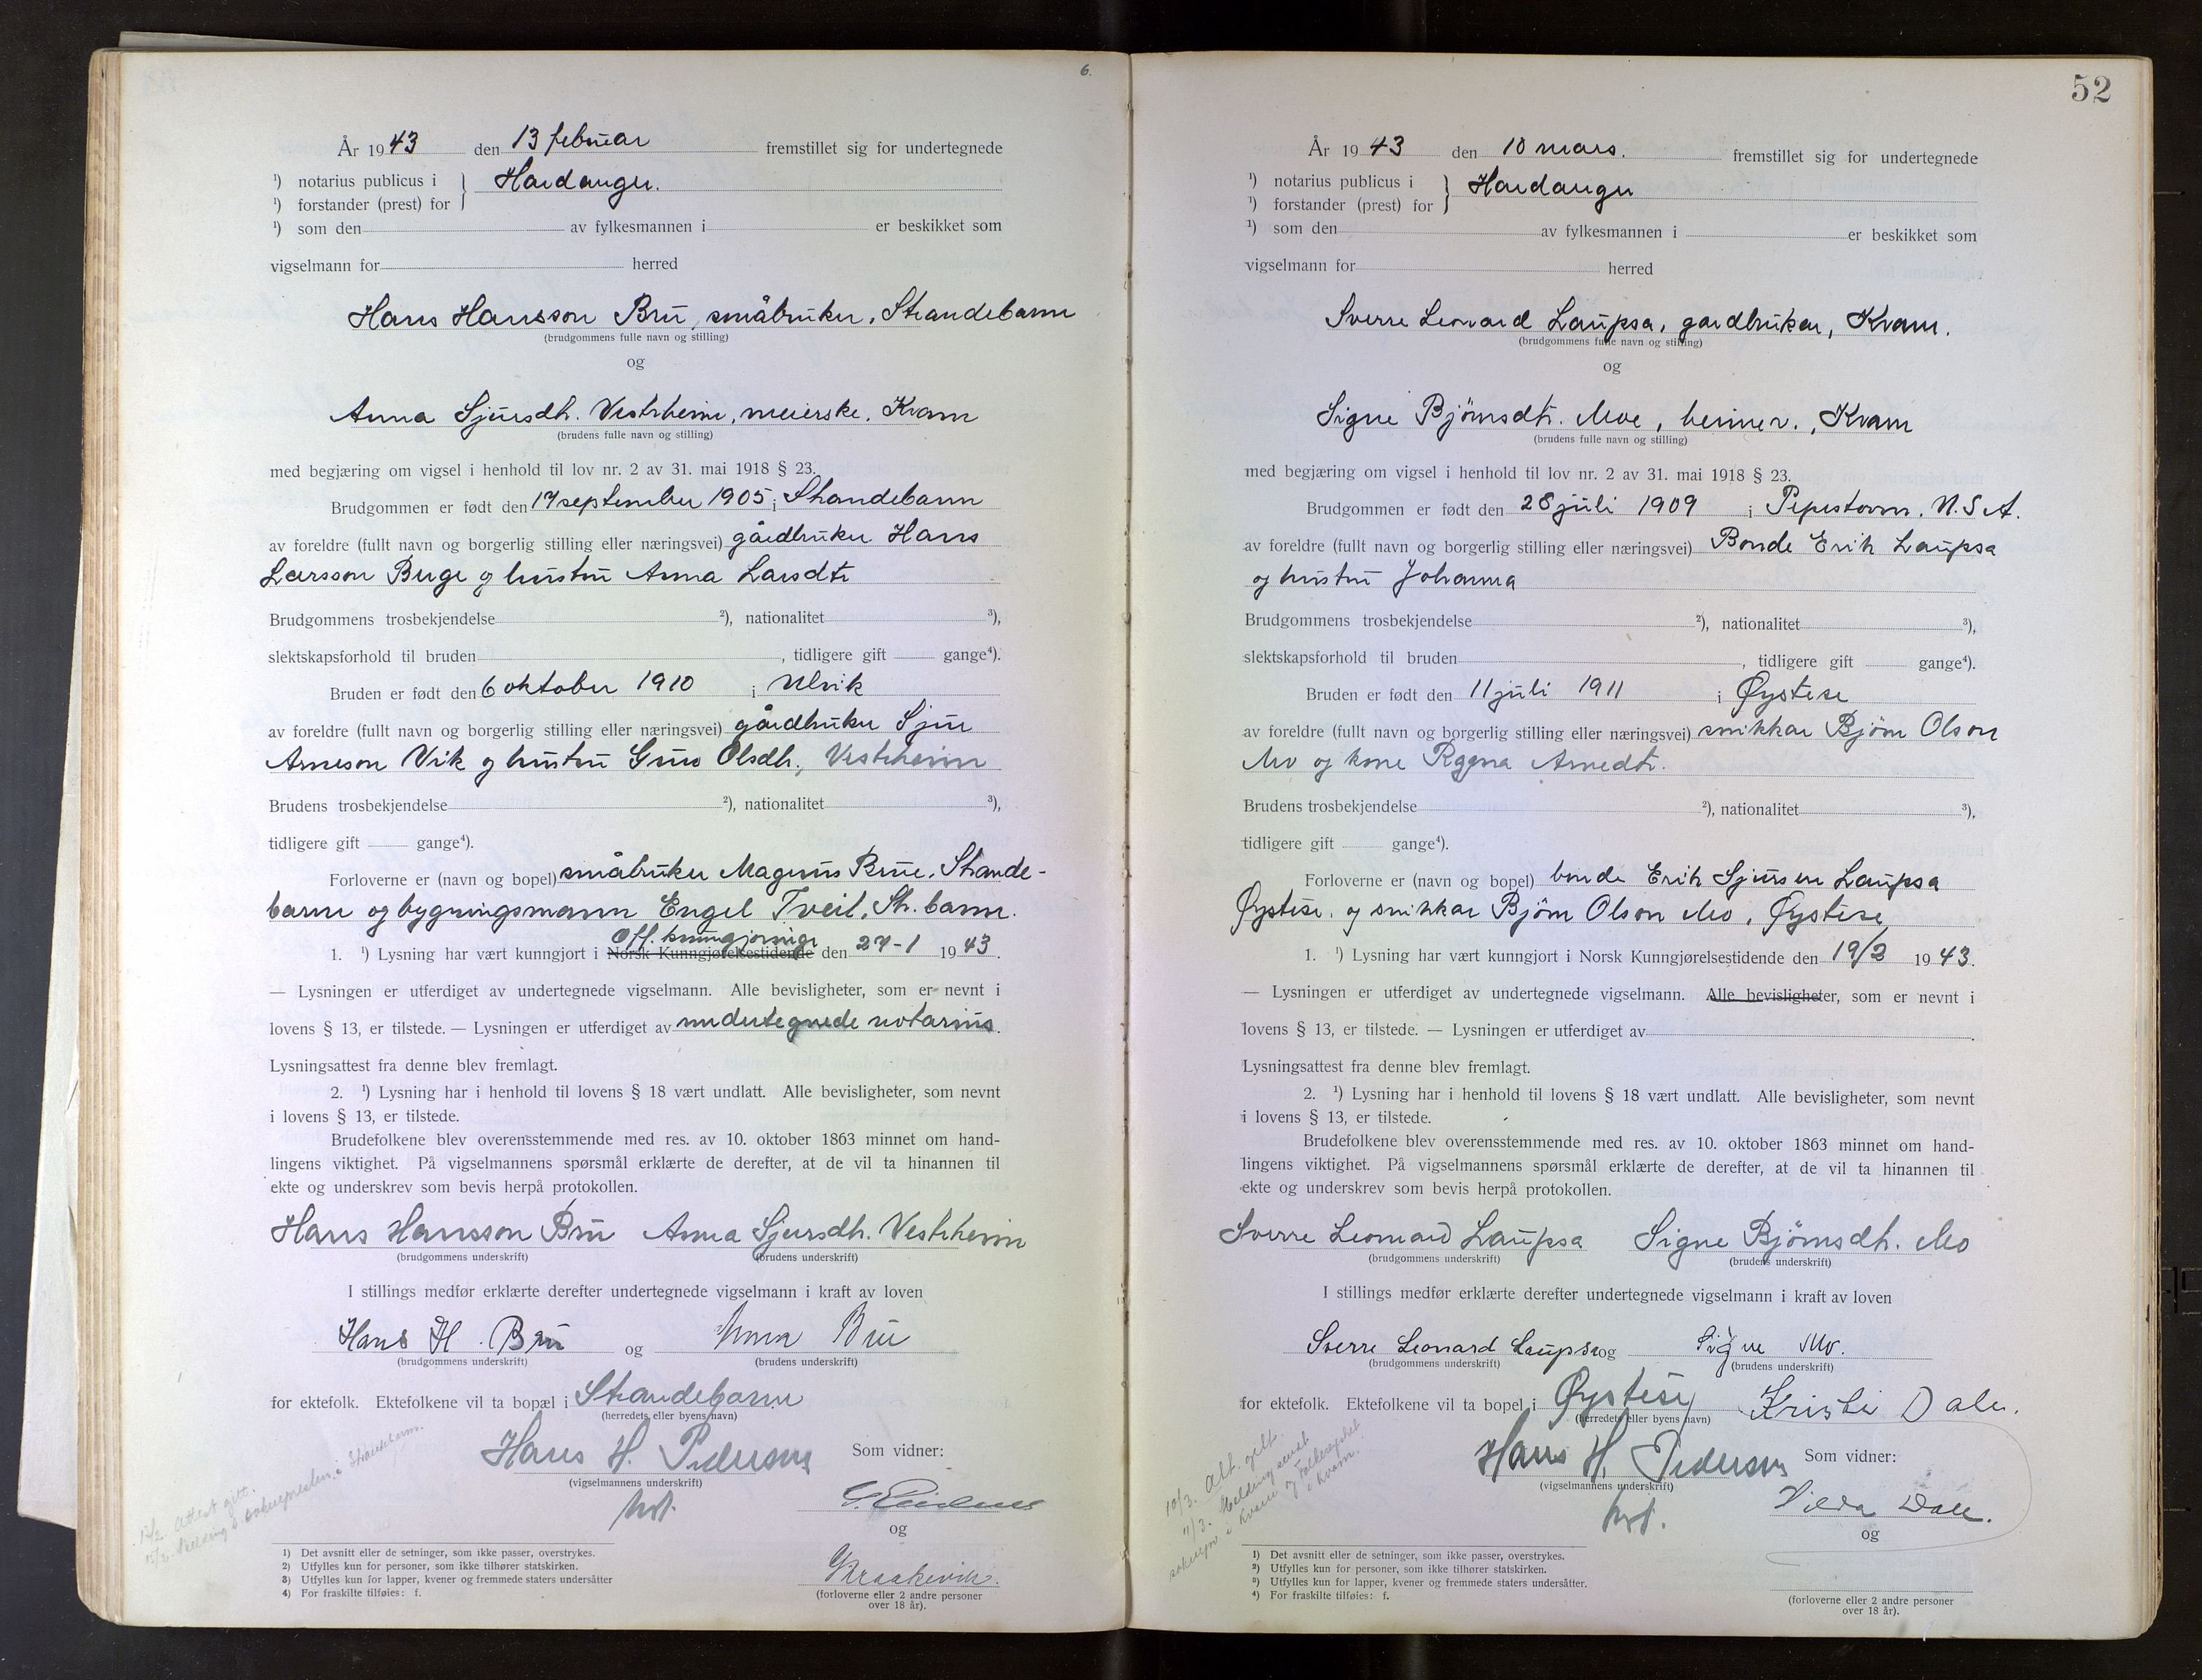 6.
År 1943 den 13 februar fremstillet sig for undertegnede
¹) notarius publicus i } Hardanger.
¹) forstander (prest) for
¹) som den av fylkesmannen i er beskikket som
vigselmann for herred
Hans Hansson Bru, småbruker, Strandebarm
(brudgommens fulle navn og stilling)
og
Anna Sjursdtr. Vestrheim, meierske, Kvam
(brudens fulle navn og stilling)
med begjæring om vigsel i henhold til lov nr. 2 av 31. mai 1918 § 23.
Brudgommen er født den 17 september 1905 i Strandebarm
av foreldre (fullt navn og borgerlig stilling eller næringsvei) gårdbruker Hans
Larsson Berge og hustru Anna Larsdtr
Brudgommens trosbekjendelse ²), nationalitet ³),
slektskapsforhold til bruden , tidligere gift gange⁴).
Bruden er født den 6 oktober 1910 i Ulvik
av foreldre (fullt navn og borgerlig stilling eller næringsvei) gårdbruker Sjur
Arneson Vik og hustru Guro Olsdtr., Vestrheim
Brudens trosbekjendelse ²), nationalitet ³),
tidligere gift gange⁴).
Forloverne er (navn og bopel) småbruker Magnus Brue, Strande-
barm og bygningsmann Engel Tveit, Str.barm.
Off. kunngjøringer
1. ¹) Lysning har vært kunngjort i Norsk Kunngjørelsestidende den 27-1 1943.
— Lysningen er utferdiget av undertegnede vigselmann. Alle bevisligheter, som er nevnt i
lovens § 13, er tilstede. — Lysningen er utferdiget av undertegnede notarius.
Lysningsattest fra denne blev fremlagt.
2. ¹) Lysning har i henhold til lovens § 18 vært undlatt. Alle bevisligheter, som nevnt
i lovens § 13, er tilstede.
Brudefolkene blev overensstemmende med res. av 10. oktober 1863 minnet om hand-
lingens viktighet. På vigselmannens spørsmål erklærte de derefter, at de vil ta hinannen til
ekte og underskrev som bevis herpå protokollen.
Hans Hansson Bru Anna Sjursdtr. Vestrheim
(brudgommens underskrift) (brudens underskrift)
I stillings medfør erklærte derefter undertegnede vigselmann i kraft av loven
Hans H. Bru og Anna Bru
(brudgommens underskrift) (brudens underskrift)
for ektefolk. Ektefolkene vil ta bopæl i Strandebarm
(herredets eller byens navn)
Hans H. Pedersen Som vidner:
(vigselmannens underskrift)
kst.
og
Kraakevik.
(forloverne eller 2 andre personer
over 18 år).
13/2. Attest gitt.
15/2. Melding t. soknepresten i Strandebarm.
1) Det avsnitt eller de setninger, som ikke passer, overstrykes.
2) Utfylles kun for personer, som ikke tilhører statskirken.
3) Utfylles kun for lapper, kvener og fremmede staters undersåtter
4) For fraskilte tilføies: f.
52
År 1943 den 10 mars. fremstillet sig for undertegnede
¹) notarius publicus i } Hardanger
¹) forstander (prest) for
¹) som den av fylkesmannen i er beskikket som
vigselmann for herred
Sverre Leonard Laupsa, gardbruker, Kvam.
(brudgommens fulle navn og stilling)
og
Signe Bjørnsdtr. Moe, heimev., Kvam
(brudens fulle navn og stilling)
med begjæring om vigsel i henhold til lov nr. 2 av 31. mai 1918 § 23.
Brudgommen er født den 28 juli 1909 i Pipestown, U.S.A.
av foreldre (fullt navn og borgerlig stilling eller næringsvei) Bonde Erik Laupsa
og hustru Johanna
Brudgommens trosbekjendelse ²), nationalitet ³),
slektskapsforhold til bruden , tidligere gift gange⁴).
Bruden er født den 11 juli 1911 i Øystese
av foreldre (fullt navn og borgerlig stilling eller næringsvei) snikkar Bjørn Olson
Mo og kone Ragna Arnedtr.
Brudens trosbekjendelse ²), nationalitet ³),
tidligere gift gange⁴).
Forloverne er (navn og bopel) bonde Erik Sjursen Laupsa
Øystese, og snikkar Bjørn Olson Mo, Øystese
1. ¹) Lysning har vært kunngjort i Norsk Kunngjørelsestidende den 19/2 1943.
— Lysningen er utferdiget av undertegnede vigselmann. Alle bevisligheter, som er nevnt i
lovens § 13, er tilstede. — Lysningen er utferdiget av
Lysningsattest fra denne blev fremlagt.
2. ¹) Lysning har i henhold til lovens § 18 vært undlatt. Alle bevisligheter, som nevnt
i lovens § 13, er tilstede.
Brudefolkene blev overensstemmende med res. av 10. oktober 1863 minnet om hand-
lingens viktighet. På vigselmannens spørsmål erklærte de derefter, at de vil ta hinannen til
ekte og underskrev som bevis herpå protokollen.
Sverre Leonard Laupsa Signe Bjørnsdtr. Mo
(brudgommens underskrift) (brudens underskrift)
I stillings medfør erklærte derefter undertegnede vigselmann i kraft av loven
Sverre Leonard Laupsa og Signe Mo.
(brudgommens underskrift) (brudens underskrift)
for ektefolk. Ektefolkene vil ta bopel i Øystese Kristi Dale.
(herredets eller byens navn)
Hans H. Pedersen Som vidner:
(vigselmannens underskrift)
kst. Vilda Dale.
og
(forloverne eller 2 andre personer
over 18 år).
10/3. Att. gitt.
11/3. Melding sendt
sokneprn i Kvam og Folkeregistret
i Kvam.
1) Det avsnitt eller de setninger, som ikke passer, overstrykes.
2) Utfylles kun for personer, som ikke tilhører statskirken.
3) Utfylles kun for lapper, kvener og fremmede staters undersåtter.
4) For fraskilte tilføies: f.